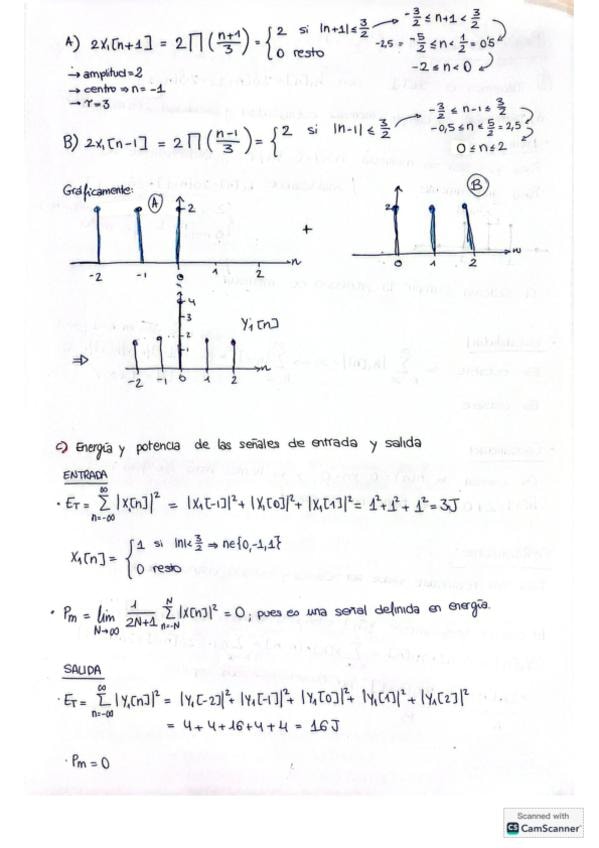 A) 2X₁[n+1] = 2∏(n+1/3) = { 2 si |n+1| ≤ 3/2 → -3/2 ≤ n+1 < 3/2
0 resto -2,5 = -5/2 ≤ n < 1/2 = 0'5
→ amplitud = 2 -2 ≤ n < 0
→ centro ⇒ n = -1
→ τ = 3
B) 2X₁[n-1] = 2∏(n-1/3) = { 2 si |n-1| ≤ 3/2 → -3/2 ≤ n-1 ≤ 3/2
-0,5 ≤ n < 5/2 = 2,5
0 ≤ n ≤ 2
Gráficamente:
A 2 n
-2 -1 0 1 2
+
B 2 n
0 1 2
⇒ 4 3 2 1 Y₁[n] n
-2 -1 0 1 2
c) Energía y potencia de las señales de entrada y salida
ENTRADA
· E_T = ∑_{n=-∞}^{∞} |X[n]|² = |X₁[-1]|² + |X₁[0]|² + |X₁[1]|² = 1² + 1² + 1² = 3J
X₁[n] = { 1 si |n|< 3/2 ⇒ n∈{0,-1,1}
0 resto
· Pm = lim_{N→∞} 1/2N+1 ∑_{n=-N}^{N} |X[n]|² = 0; pues es una señal definida en energía.
SALIDA
· E_T = ∑_{n=-∞}^{∞} |Y₁[n]|² = |Y₁[-2]|² + |Y₁[-1]|² + |Y₁[0]|² + |Y₁[1]|² + |Y₁[2]|²
= 4 + 4 + 16 + 4 + 4 = 16J
· Pm = 0
Scanned with
CS CamScanner